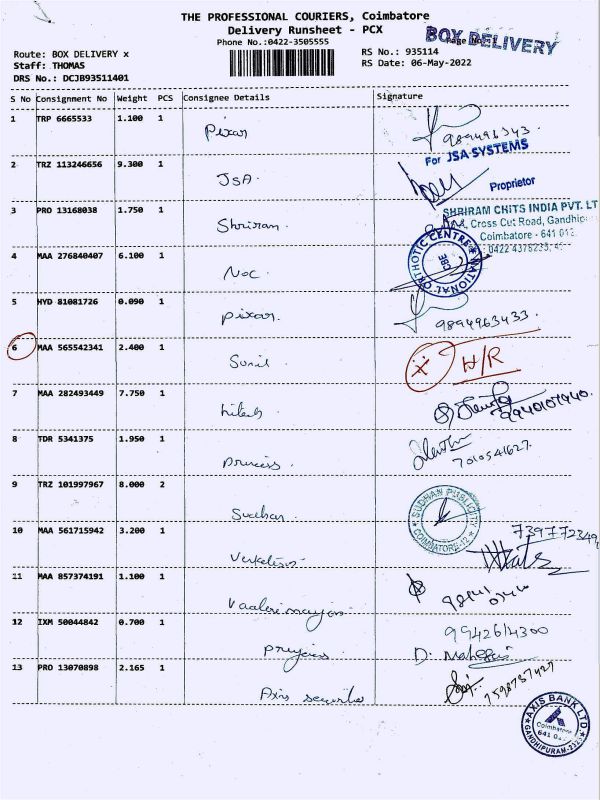 THE PROFESSIONAL COURIERS, Coimbatore
Delivery Runsheet - PCX
Phone No.:0422-3505555
BOX DELIVERY
Route: BOX DELIVERY x
RS No.: 935114
Staff: THOMAS
RS Date: 06-May-2022
DRS No.: DCJB93511401
S No Consignment No Weight PCS Consignee Details Signature
1 TRP 6665533 1.100 1 Pixar
For JSA SYSTEMS
2 TRZ 113246656 9.300 1 JSA.
Proprietor
3 PRO 13168038 1.750 1 Shriram.
SHRIRAM CHITS INDIA PVT. LT
Cross Cut Road, Gandhip
Coimbatore - 641 012
0422 4378233,
4 MAA 276840407 6.100 1 NOC.
NATIONAL ORTHOTIC CENTRE
CBE
5 HYD 81081726 0.090 1 pixar.
9894963433.
6 MAA 565542341 2.400 1 Sunil
H/R
7 MAA 282493449 7.750 1
9940107940.
8 TDR 5341375 1.950 1 princess.
7010541627.
9 TRZ 101997967 8.000 2 Sudhan.
SUDHAN PUBLICITY
COIMBATORE-12
10 MAA 561715942 3.200 1
739772349
11 MAA 857374191 1.100 1
12 IXM 50044842 0.700 1
9942614300
D.
13 PRO 13070898 2.165 1 Axis
7598737427
AXIS BANK LTD
Coimbatore
GANDHIPURAM